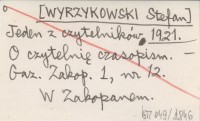 [WYRZYKOWSKI Stefan]
Jeden z czytelników. 1921.
O czytelnię czasopism. —
Gaz. Zakop. 1, nr 12.
W Zakopanem.